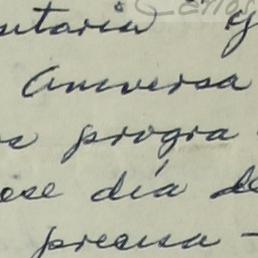 utaria y
Aniversa
os progra
ese día de
precisa -